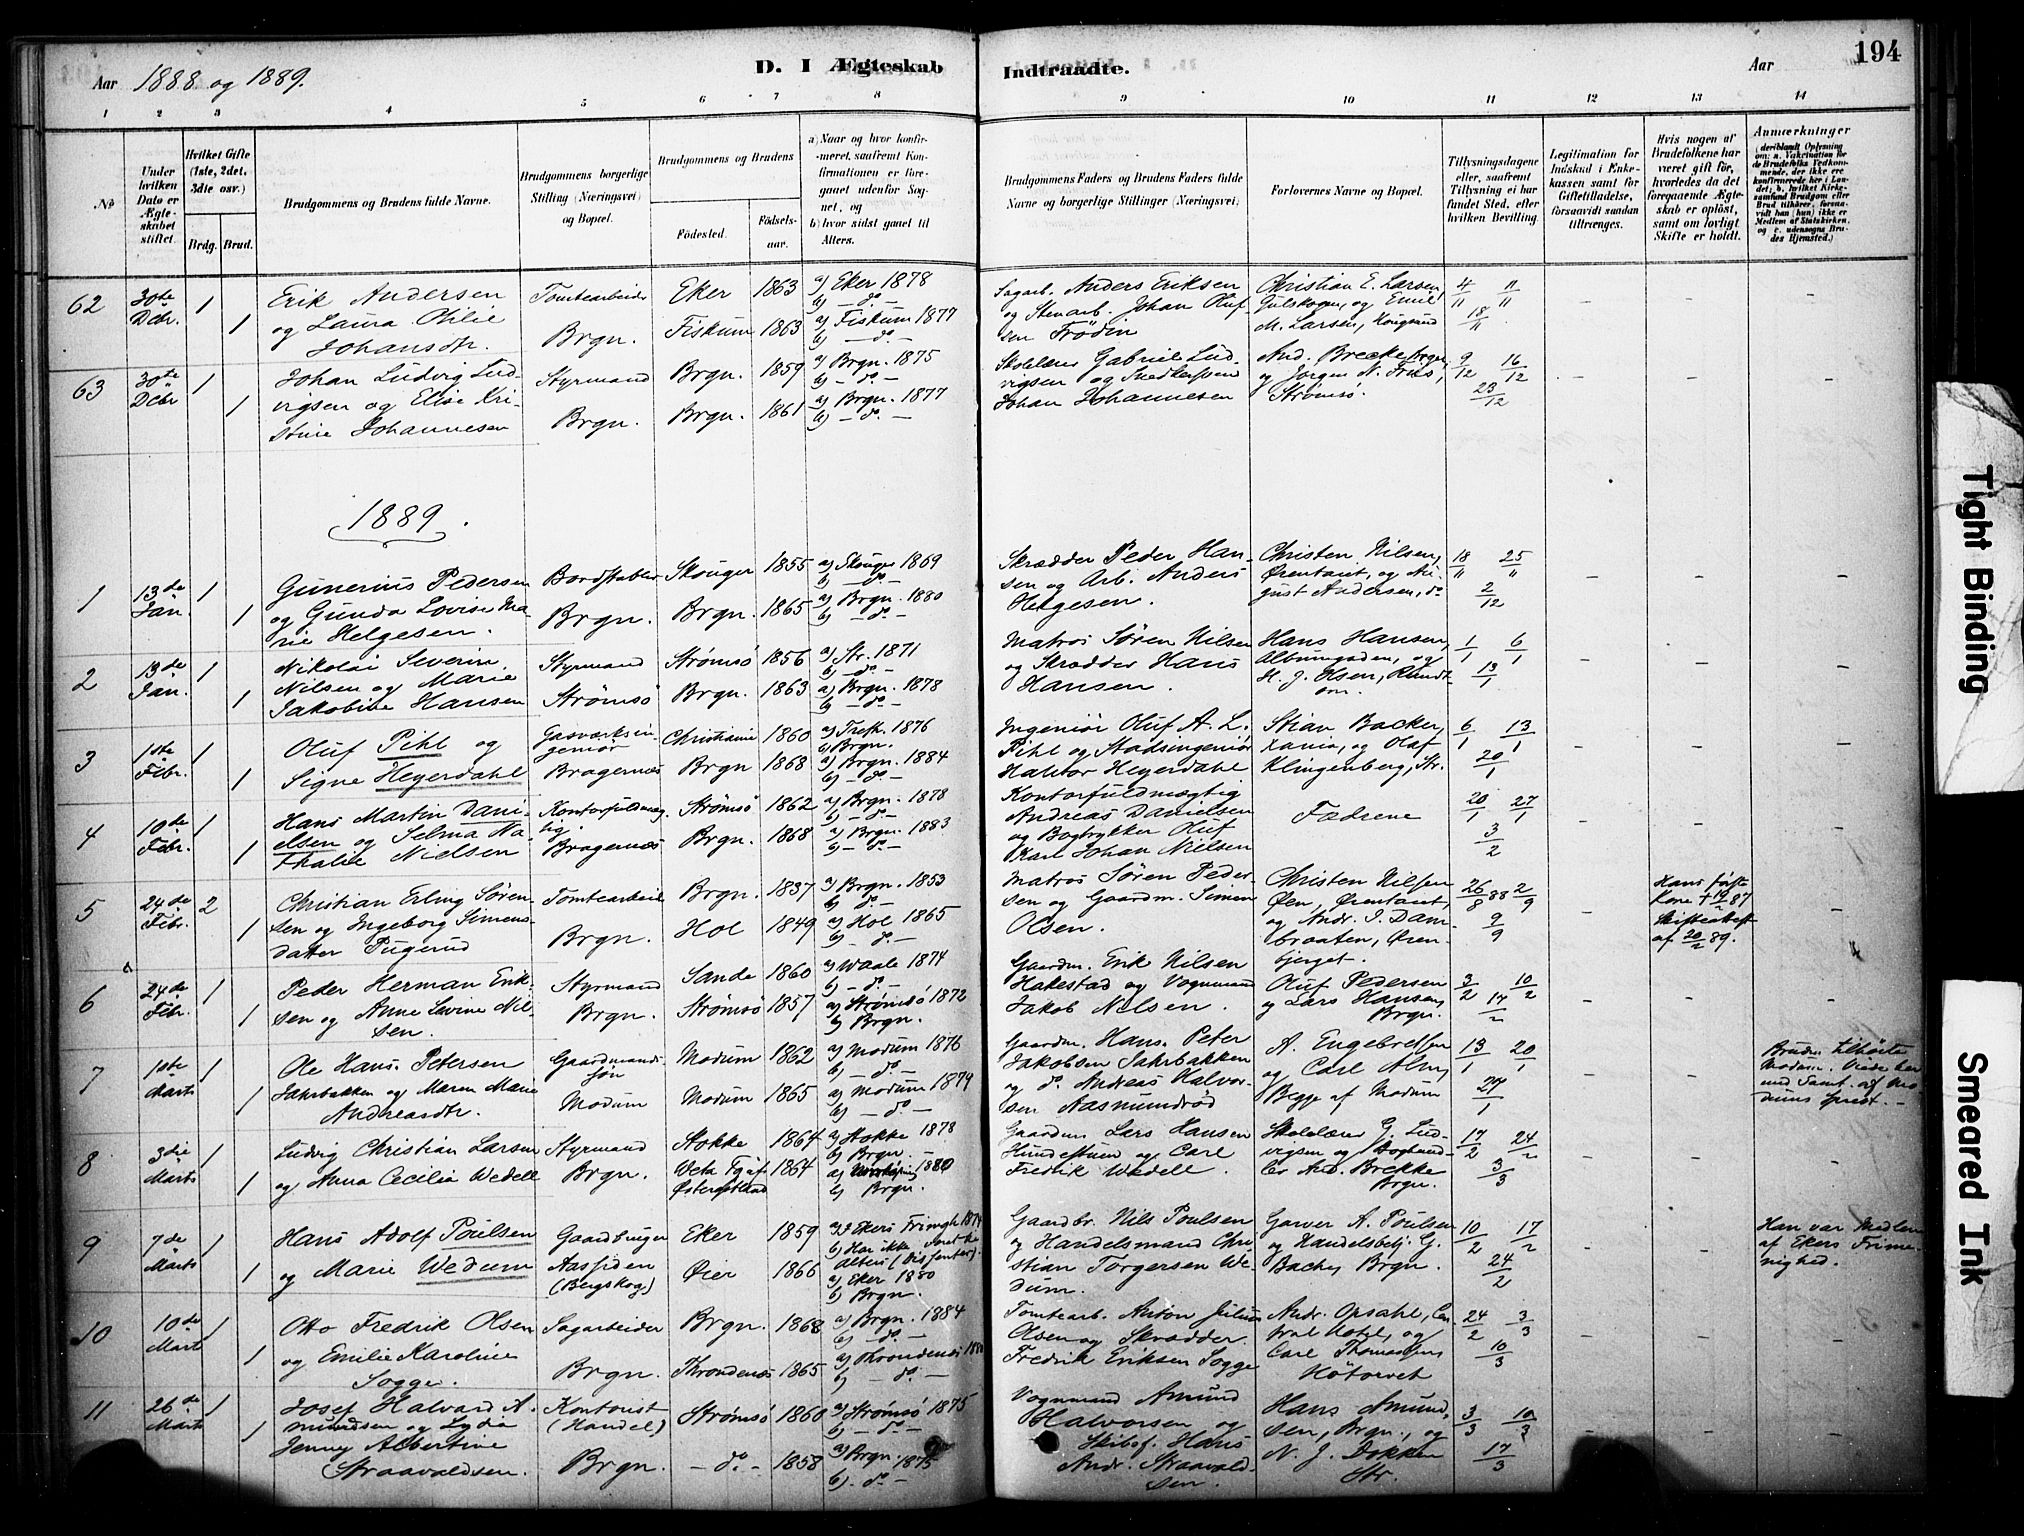 194
Aar 1888 og 1889.
D. I Ægteskab Indtraadte.
Aar
1 2 3 4 5 6 7 8 9 10 11 12 13 14
No
Under hvilken Dato er Ægteskabet stiftet.
Hvilket Gifte (1ste, 2det, 3die osv.)
Brdg. Brud.
Brudgommens og Brudens fulde Navne.
Brudgommens borgerlige Stilling (Næringsvei) og Bopæl.
Brudgommens og Brudens
Fødested.
Fødselsaar.
a) Naar og hvor konfirmeret, saafremt Konfirmationen er foregaaet udenfor Sognet, og
b) hvor sidst gaaet til Alters.
Brudgommens Faders og Brudens Faders fulde Navne og borgerlige Stillinger (Næringsvei)
Forlovernes Navne og Bopæl.
Tillysningsdagene eller, saafremt Tillysning ei har fundet Sted, efter hvilken Bevilling.
Legitimation for Indskud i Enkekassen samt for Giftetilladelse, forsaavidt saadan tiltrænges.
Hvis nogen af Brudefolkene har været gift før, hvorledes da det foregaaende Ægteskab er opløst, samt om lovligt Skifte er holdt.
Anmærkninger
(deriblandt Oplysning om: a. Vakcination for de Brudefolks Vedkommende, der ikke ere konfirmerede her i Landet; b. hvilket Kirkesamfund Brudgom eller Brud tilhører, forsaavidt han (hun) ikke er Medlem af Statskirken, og c. udensogns Brudes Hjemsted.)
62 30te Dcbr. 1 1
Erik Andersen
og Laura Othilie
Johansdtr.
Tomtearbeider
Brgn.
Eker 1863 a) Eker 1878
b) – do –
Fiskum 1863 a) Fiskum 1877
b) – do –
Sagarb. Anders Eriksen
og Stenarb. Johan Oluf-
sen Frøden
Christian E. Larsen,
Gulskogen, og Emil
M. Larsen, Hougsund
4/11 11/11
18/11
63 30te Dcbr 1 1
Johan Ludvig Lud-
vigsen og Elise Kri-
stine Johannesen
Styrmand
Brgn.
Brgn. 1859 a) Brgn. 1875
b) – do –
Brgn. 1861 a) Brgn. 1877
b) – do –
Skolelærer Gabriel Lud-
vigsen og Snedkersvend
Johan Johannesen
And. Brecke, Brgn.
og Jørgen N. Friis,
Strømsö.
9/12 16/12
23/12
1889.
1 13de Jan. 1 1
Gunerius Pedersen
og Gunda Lovise Ma-
rie Helgesen.
Bordstabler
Brgn.
Skouger 1855 a) Skouger 1869
b) – do –
Brgn. 1865 a) Brgn. 1880
b) – do –
Skrædder Peder Han-
sen og Arb. Anders
Helgesen.
Christen Nilsen,
Ørentaret, og Au-
gust Andersen, do
18/11 25/11
2/12
2 13de Jan. 1 1
Nikolai Severin
Nilsen og Marie
Jakobine Hansen
Styrmand
Strömsö
Strömsö 1856 a) Str. 1871
b) – do –
Brgn. 1863 a) Brgn. 1878
b) – do –
Matros Sören Nilsen
og Skrædder Hans
Hansen.
Hans Hansen,
Albumsgaden, og
H. J. Olsen, Rundt-
om.
1/1 6/1
13/1
3 1ste Febr. 1 1
Oluf Pihl og
Signe Heyerdahl
Gasværksin-
geniör
Bragernæs
Christiania 1860 a) Trefk. 1876
b) Brgn.
Brgn 1868 a) Brgn. 1884
b) – do –
Ingeniör Oluf A. L.
Pihl og Stadsingeniör
Halvor Heyerdahl
Stian Backer,
Xania, og Olaf
Klingenberg, Str.
6/1 13/1
20/1
4 10de Febr. 1 1
Hans Martin Dani-
elsen og Selma Na-
thalie Nielsen
Kontorfuldmæg-
tig
Bragernæs
Strömsö 1862 a) Brgn. 1878
b) – do –
Brgn. 1868 a) Brgn. 1883
b) – do –
Kontorfuldmægtig
Andreas Danielsen
og Bogtrykker Oluf
Karl Johan Nielsen
Fædrene
20/1 27/1
3/2
5 24de Febr. 2 1
Christian Erling Sören-
sen og Ingeborg Simens-
datter Pugerud
Tomtearbeid.
Brgn.
Brgn. 1837 a) Brgn. 1853
b) – do –
Hol 1849 a) Hol 1865
b) – do –
Matros Sören Peder-
sen og Gaardm. Simen
Olsen.
Christen Nilsen
Øen, Ørentaret,
og Andr. J. Dam-
braaten, Øren-
bjerget.
26/8 88 2/9
9/9
Hans förste
Kone † 19/2 87
Skifteattest
af 20/2 89.
6 24de Febr. 1 1
Peder Herman Erik-
sen og Anne Lovine Nil-
sen.
Styrmand
Brgn.
Sande 1860 a) Waale 1874
b) – do –
Strömsö 1857 a) Strömsö 1872
b) Brgn.
Gaardm. Erik Nilsen
Hakestad og Vognmand
Jakob Nilsen.
Oluf Pedersen
og Lars Hansen,
Brgn.
3/2 10/2
17/2
7 1ste Marts 1 1
Ole Hans. Petersen
Jahrbakken og Maren Marie
Andreasdtr.
Gaardmands-
sön
Modum
Modum 1862 a) Modum 1876
b) – do –
Modum 1865 a) Modum 1879
b) – do –
Gaardm. Hans. Peter
Jakobsen Jahrbakken
og do. Andreas Halvor-
sen Aasmundröd
A. Engebretsen
og Carl Alm,
Begge af Modum
13/1 20/1
27/1
Bruden tilhörte
Modum. Viede her
med Samt. af Mo-
dums Prest.
8 3die Marts 1 1
Ludvig Christian Larsen
og Anna Cecilia Wedell
Styrmand
Brgn.
Stokke 1864 a) Stokke 1878
b) Brgn. –
Weta
Østergötland 1864 a) 1880
b) Brgn.
Gaardm. Lars Hansen
Hundestuen og Carl
Fredrik Wedell.
Skolelærer G. Lud-
vigsen og Boghand-
ler And. Brekke
Brgn.
17/2 24/2
3/3
9 7de Marts 1 1
Hans Adolf Poulsen
og Marie Wedum
Gaardbruger
Aassiden
(Bergskog)
Eker 1859 a) Ekers Frimgh. 1874
b) Har ikke været til
Alters (Dissenter).
Øier 1866 a) Eker 1880
b) Brgn.
Gaardbr. Nils Poulsen
og Handelsmand Chri-
stian Torgersen We-
dum.
Garver A. Poulsen
og Handelsbetj. G.
Bache, Brgn.
10/2 17/2
24/2
Han var Medlem
af Ekers Frime-
nighed.
10 10de Marts 1 1
Otto Fredrik Olsen
og Emilie Karoline
Sogge.
Sagarbeider
Brgn.
Brgn. 1868 a) Brgn. 1884
b) – do –
Throndenæs 1865 a) Throndenæs 1880
b) – do –
Tomtearb. Anton Julius
Olsen og Skrædder
Fredrik Eriksen Sogge
Andr. Opsahl, Cen-
tral Hotel, og
Carl Thomassen,
Höitorvet
24/2 3/3
10/3
11 26de Marts 1 1
Josef Halvard A-
mundsen og Lydia
Jenny Albertine
Straavaldsen.
Kontorist
(Handel)
Brgn.
Strömsö 1860 a) Strömsö 1875
b) – do –
– do – 1858 a) Brgn. 1875
b) – do –
Vognmand Amund
Halvorsen og
Skibsf. Hans
Andr. Straavald-
sen.
Hans Amund-
sen, Brgn., og
N. J. Dokken
Str.
3/3 10/3
17/3
Tight Binding
Smeared Ink